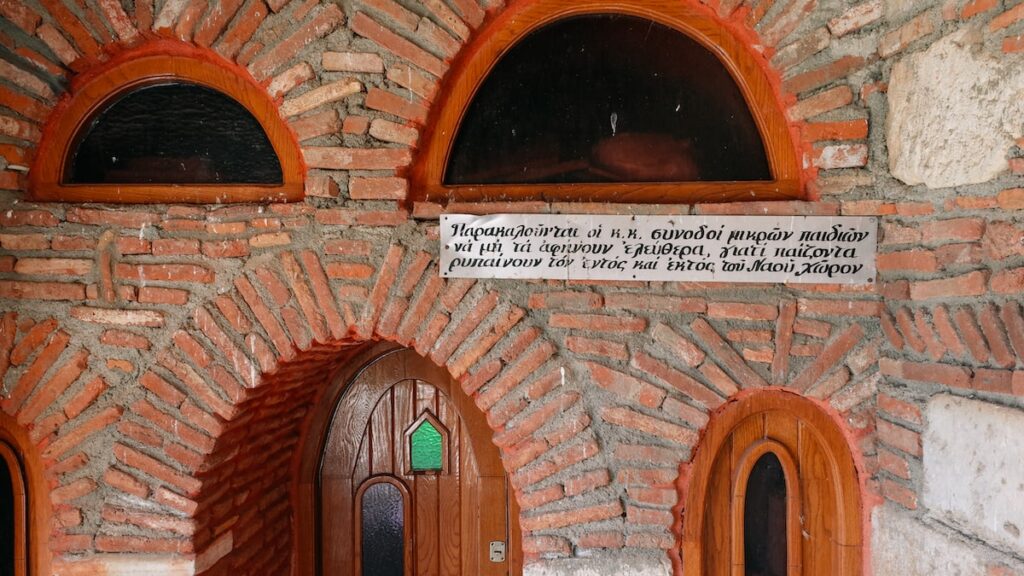 Παρακαλοῦνται οἱ κ.κ. συνοδοί μικρῶν παιδιῶν
νά μή τά ἀφήνουν ἐλεύθερα, γιατί παίζοντα
ρυπαίνουν τόν ἐντός καί ἐκτός τοῦ Ναοῦ χῶρον